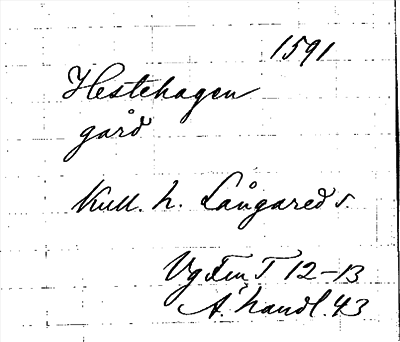 1591
Hestehagen
gård
Kull. h. Långareds
Vg Fm T 12-13
A: handl. 43